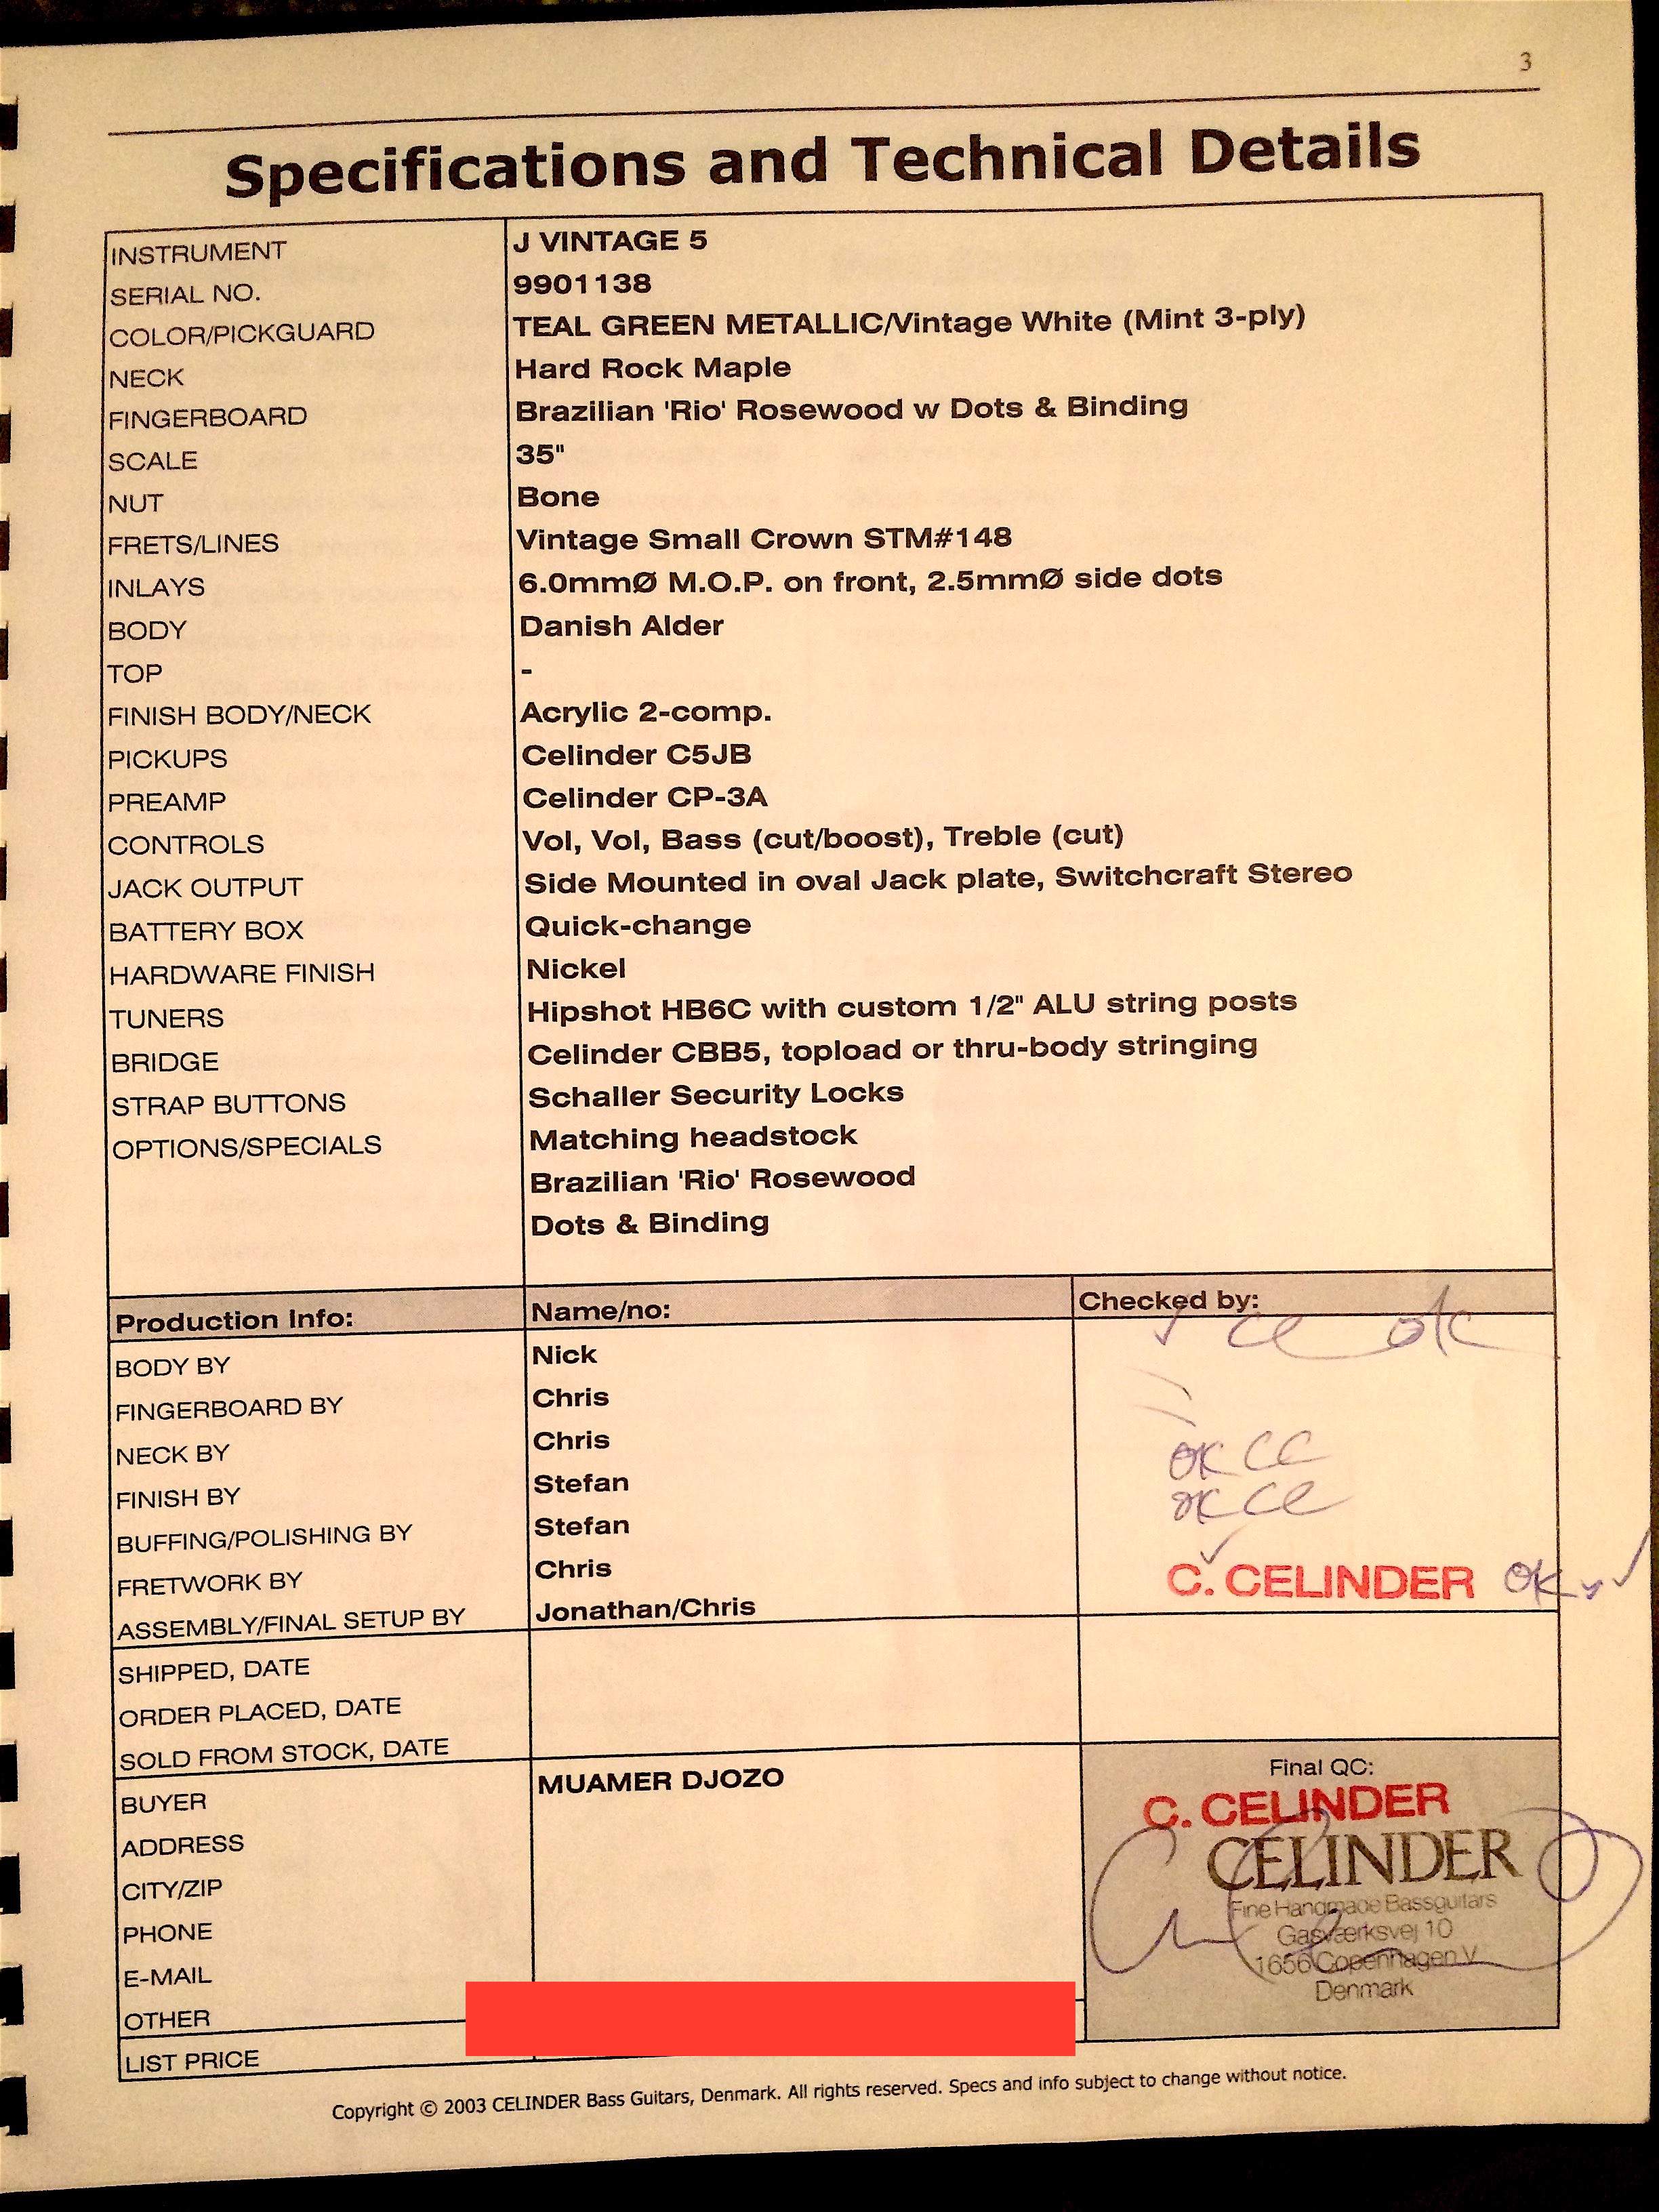 3
Specifications and Technical Details
INSTRUMENT J VINTAGE 5
SERIAL NO. 9901138
COLOR/PICKGUARD TEAL GREEN METALLIC/Vintage White (Mint 3-ply)
NECK Hard Rock Maple
FINGERBOARD Brazilian 'Rio' Rosewood w Dots & Binding
SCALE 35"
NUT Bone
FRETS/LINES Vintage Small Crown STM#148
INLAYS 6.0mmØ M.O.P. on front, 2.5mmØ side dots
BODY Danish Alder
TOP -
FINISH BODY/NECK Acrylic 2-comp.
PICKUPS Celinder C5JB
PREAMP Celinder CP-3A
CONTROLS Vol, Vol, Bass (cut/boost), Treble (cut)
JACK OUTPUT Side Mounted in oval Jack plate, Switchcraft Stereo
BATTERY BOX Quick-change
HARDWARE FINISH Nickel
TUNERS Hipshot HB6C with custom 1/2" ALU string posts
BRIDGE Celinder CBB5, topload or thru-body stringing
STRAP BUTTONS Schaller Security Locks
OPTIONS/SPECIALS Matching headstock
Brazilian 'Rio' Rosewood
Dots & Binding
Production Info: Name/no: Checked by:
BODY BY Nick ✓ CC ok
FINGERBOARD BY Chris
NECK BY Chris OK CC
FINISH BY Stefan OK CC
BUFFING/POLISHING BY Stefan ✓
FRETWORK BY Chris C. CELINDER OK
ASSEMBLY/FINAL SETUP BY Jonathan/Chris
SHIPPED, DATE
ORDER PLACED, DATE
SOLD FROM STOCK, DATE
BUYER MUAMER DJOZO
ADDRESS
CITY/ZIP
PHONE
E-MAIL
OTHER
LIST PRICE
Final QC:
C. CELINDER
CELINDER
Fine Handmade Bassguitars
Gasværksvej 10
1656 Copenhagen V
Denmark
Copyright © 2003 CELINDER Bass Guitars, Denmark. All rights reserved. Specs and info subject to change without notice.